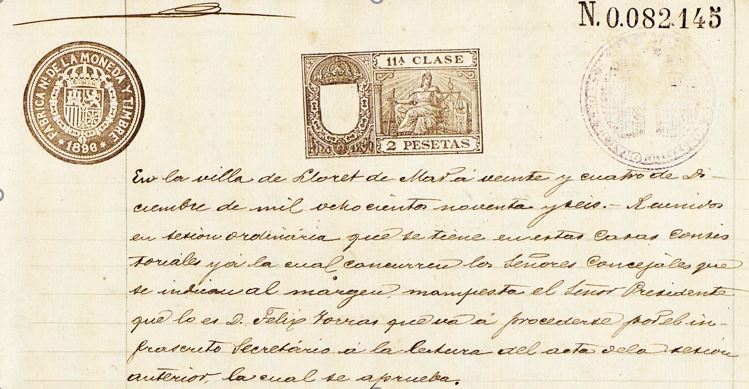 N.0.082.145
FABRICA NL. DE LA MONEDA Y TIMBRE
* 1896 *
11ª CLASE
2 PESETAS
En la villa de Lloret de Mar á veinte y cuatro de Di-
ciembre de mil ochocientos noventa y seis.- Reunidos
en sesion ordinária que se tiene en estas Casas Consis
toriales y á la cual concurren los Señores Concejáles que
se indican al márgen, manifesta el Señor Presidente
que lo es D. Felix Torras que vá á procederse por el in-
frascrito Secretário á la lectura del acta de la sesion
anterior, la cual se aprueba.